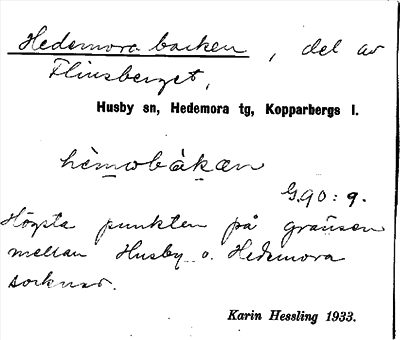 Hedemora backen, del av
Flinsberget,
Husby sn, Hedemora tg, Kopparbergs l.
hèmobàkæn
G.90: 9.
Högsta punkten på gränsen
mellan Husby o. Hedemora
socknar.
Karin Hessling 1933.